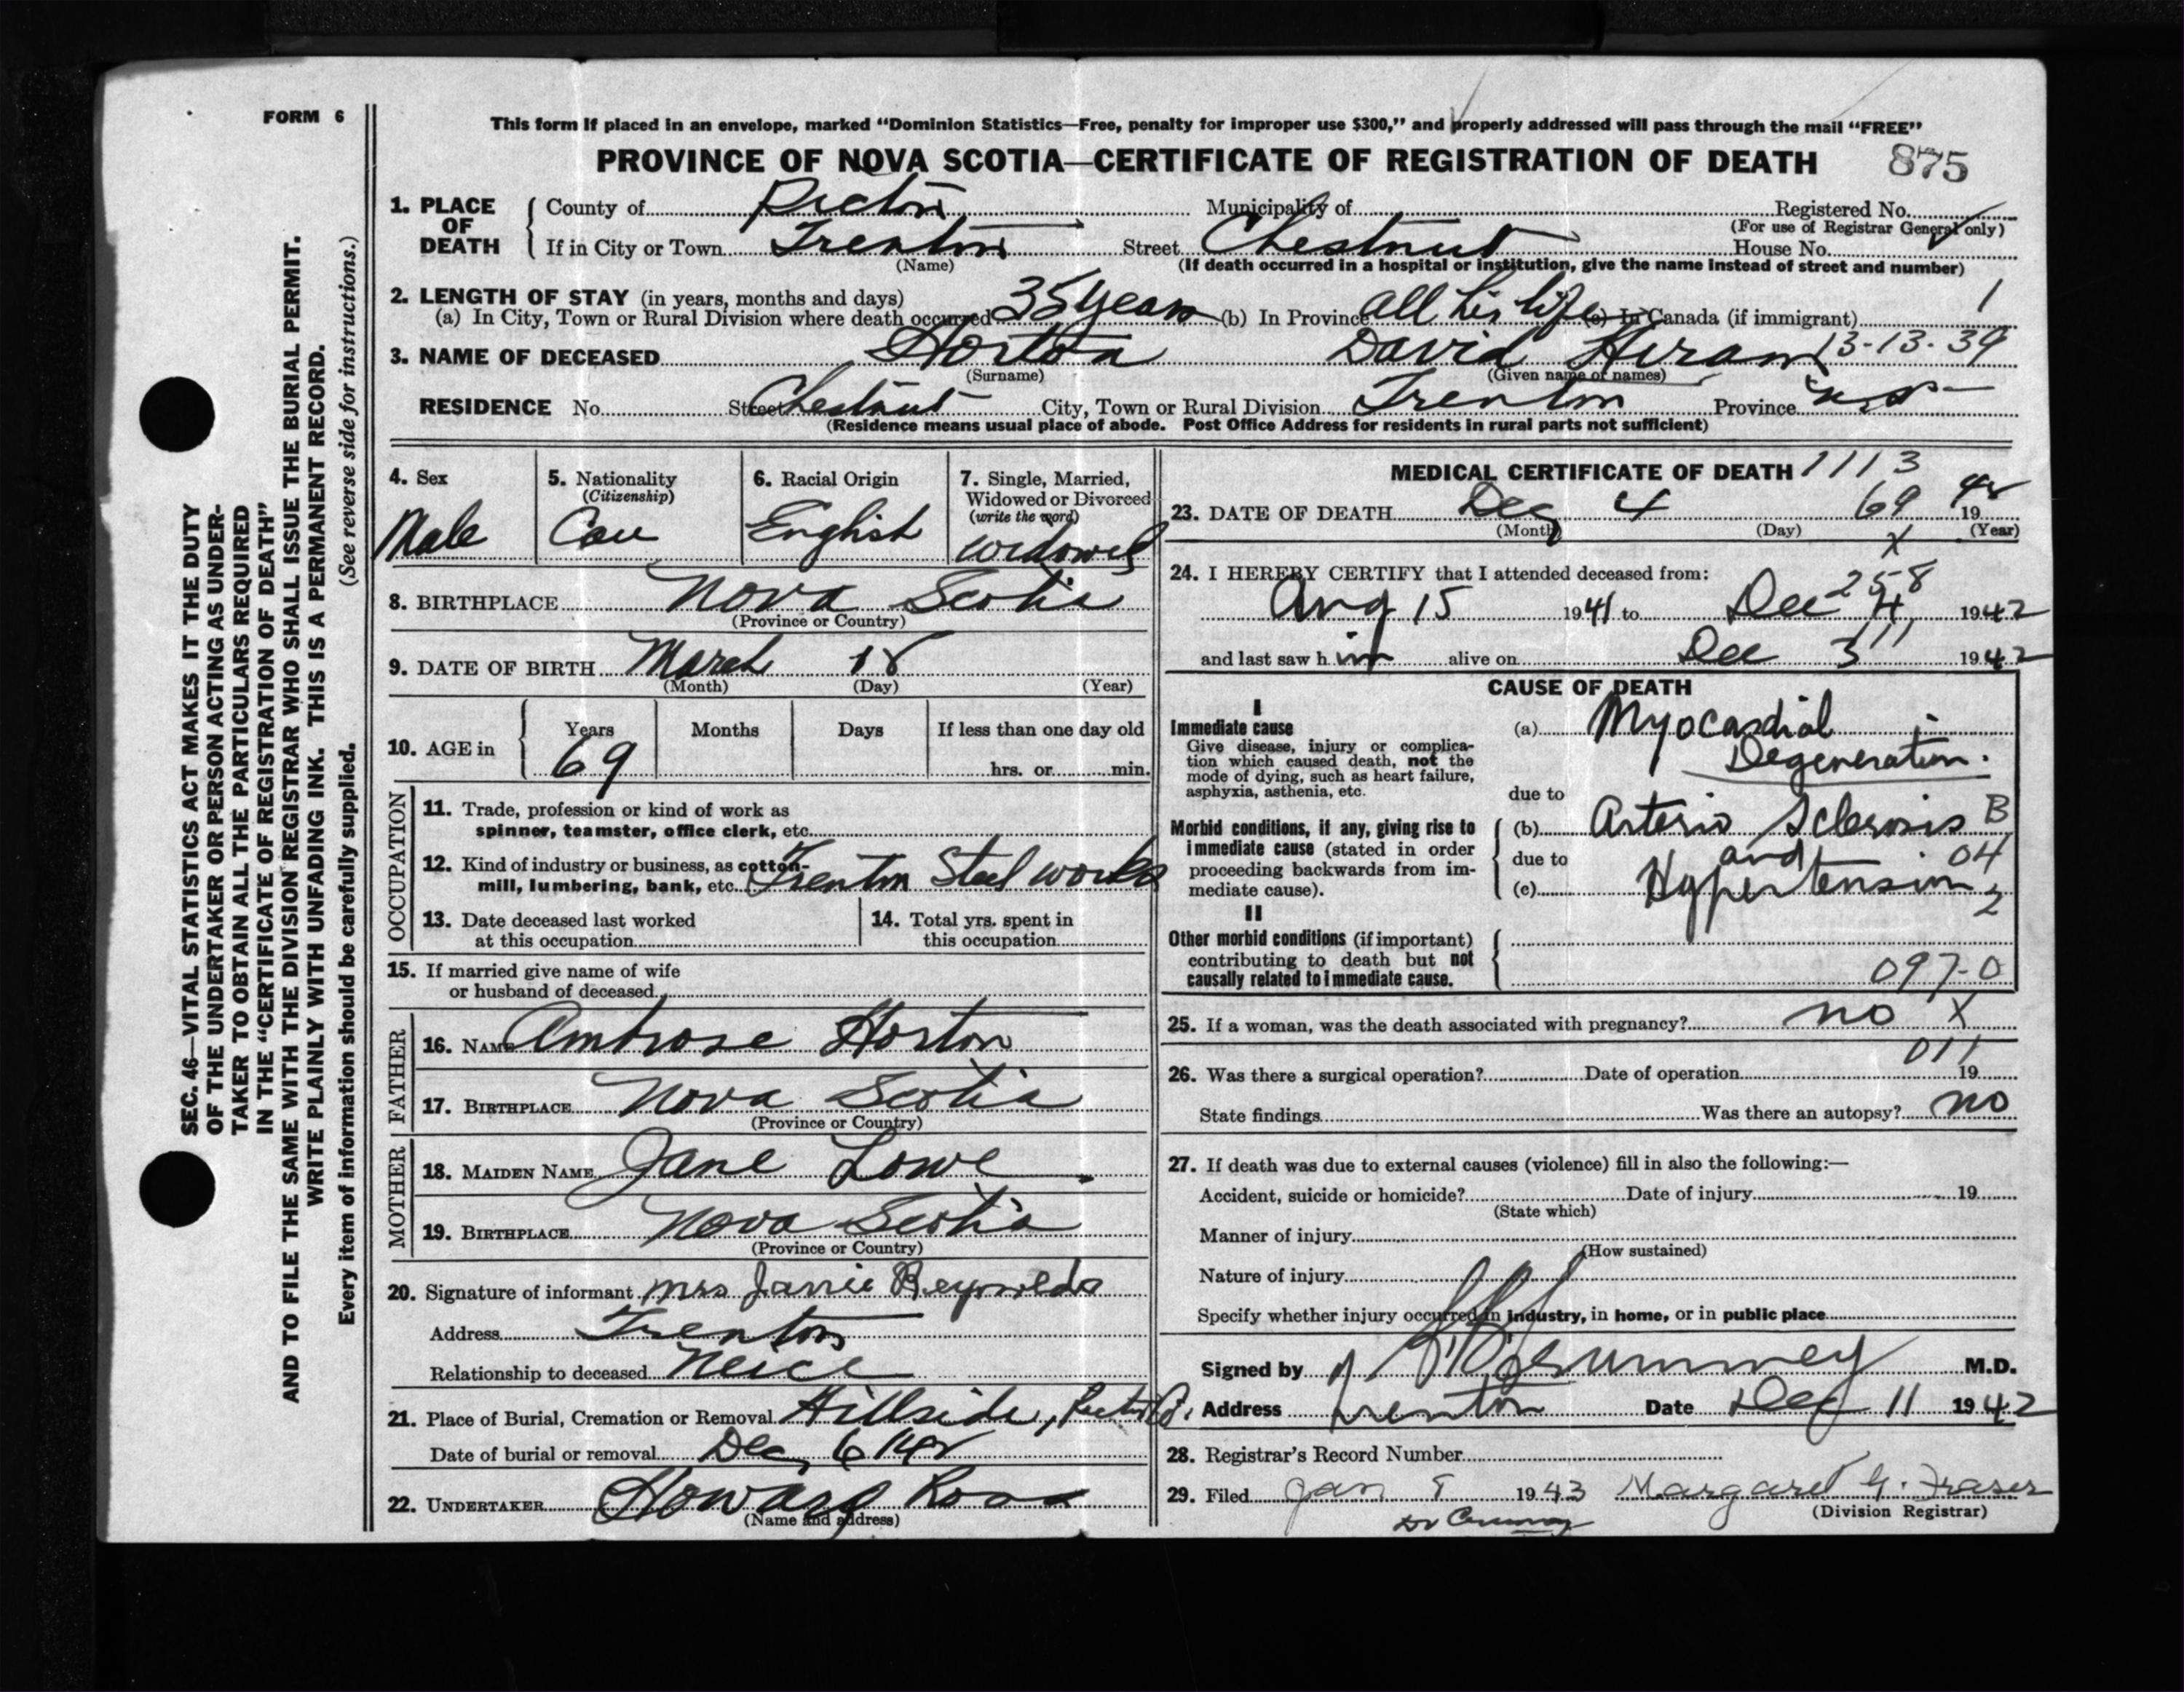 FORM 6
This form if placed in an envelope, marked “Dominion Statistics—Free, penalty for improper use $300,” and properly addressed will pass through the mail “FREE”
PROVINCE OF NOVA SCOTIA—CERTIFICATE OF REGISTRATION OF DEATH 875
1. PLACE OF DEATH
County of Pictou Municipality of Registered No.
(For use of Registrar General only)
If in City or Town Trenton Street Chestnut House No.
(Name) (If death occurred in a hospital or institution, give the name instead of street and number)
2. LENGTH OF STAY (in years, months and days) 1
(a) In City, Town or Rural Division where death occurred 35 years (b) In Province all his life (c) In Canada (if immigrant)
3. NAME OF DECEASED Horton David Hiram 13-13-39
(Surname) (Given name or names)
RESIDENCE No. Street Chestnut City, Town or Rural Division Trenton Province N.S.
(Residence means usual place of abode. Post Office Address for residents in rural parts not sufficient)
4. Sex
Male
5. Nationality
(Citizenship)
Can
6. Racial Origin
English
7. Single, Married,
Widowed or Divorced
(write the word)
widowed
8. BIRTHPLACE Nova Scotia
(Province or Country)
9. DATE OF BIRTH March 18
(Month) (Day) (Year)
10. AGE in
Years Months Days If less than one day old
69 hrs. or min.
OCCUPATION
11. Trade, profession or kind of work as
spinner, teamster, office clerk, etc.
12. Kind of industry or business, as cotton-
mill, lumbering, bank, etc. Trenton Steel works
13. Date deceased last worked
at this occupation
14. Total yrs. spent in
this occupation
15. If married give name of wife
or husband of deceased
FATHER
16. NAME Ambrose Horton
17. BIRTHPLACE Nova Scotia
(Province or Country)
MOTHER
18. MAIDEN NAME Jane Lowe
19. BIRTHPLACE Nova Scotia
(Province or Country)
20. Signature of informant Mrs Janie Reynolds
Address Trenton
Relationship to deceased Neice
21. Place of Burial, Cremation or Removal Hillside, Pictou Co.
Date of burial or removal Dec 6 1942
22. UNDERTAKER Howard Ross
(Name and address)
MEDICAL CERTIFICATE OF DEATH 1113
23. DATE OF DEATH Dec 4 69 19 42
(Month) (Day) (Year)
X
24. I HEREBY CERTIFY that I attended deceased from:
258
Aug 15 1941 to Dec 4 1942
and last saw h im alive on Dec 3 11 1942
CAUSE OF DEATH
I
Immediate cause
Give disease, injury or complica-
tion which caused death, not the
mode of dying, such as heart failure,
asphyxia, asthenia, etc.
(a) Myocardial
Degeneration.
due to
Morbid conditions, if any, giving rise to
immediate cause (stated in order
proceeding backwards from im-
mediate cause).
(b) Arterio Sclerosis B
due to and 04
(c) Hypertension 2
II
Other morbid conditions (if important)
contributing to death but not
causally related to immediate cause.
097-0
25. If a woman, was the death associated with pregnancy? no X
011
26. Was there a surgical operation? Date of operation 19
State findings Was there an autopsy? no
27. If death was due to external causes (violence) fill in also the following:—
Accident, suicide or homicide? Date of injury 19
(State which)
Manner of injury
(How sustained)
Nature of injury
Specify whether injury occurred in industry, in home, or in public place
Signed by M.D.
Address Trenton Date Dec 11 1942
28. Registrar's Record Number
29. Filed Jan 8 1943 Margaret G. Fraser
(Division Registrar)
SEC. 46—VITAL STATISTICS ACT MAKES IT THE DUTY
OF THE UNDERTAKER OR PERSON ACTING AS UNDER-
TAKER TO OBTAIN ALL THE PARTICULARS REQUIRED
IN THE “CERTIFICATE OF REGISTRATION OF DEATH”
AND TO FILE THE SAME WITH THE DIVISION REGISTRAR WHO SHALL ISSUE THE BURIAL PERMIT.
WRITE PLAINLY WITH UNFADING INK. THIS IS A PERMANENT RECORD.
Every item of information should be carefully supplied. (See reverse side for instructions.)